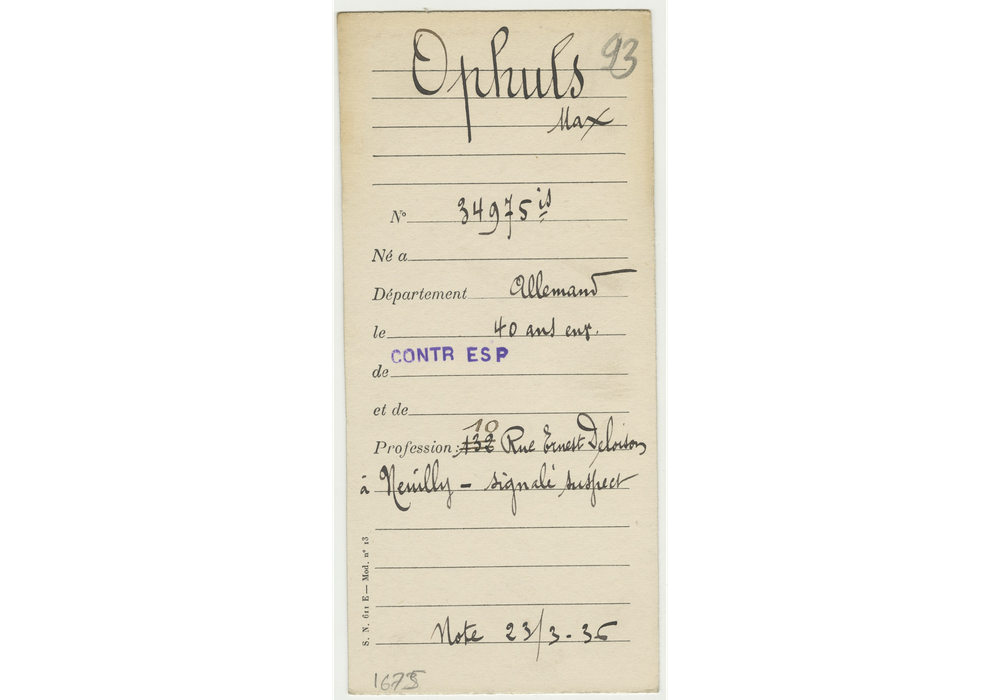 Ophuls 93
Max
N° 34975 is
Né a
Département Allemand
le 40 ans env.
CONTR ESP
de
et de
10
Profession : 138 Rue Ernest Deloison
à Neuilly – signalé suspect
Note 23/3-36
S. N. 611 E — Mod. n° 13
1675